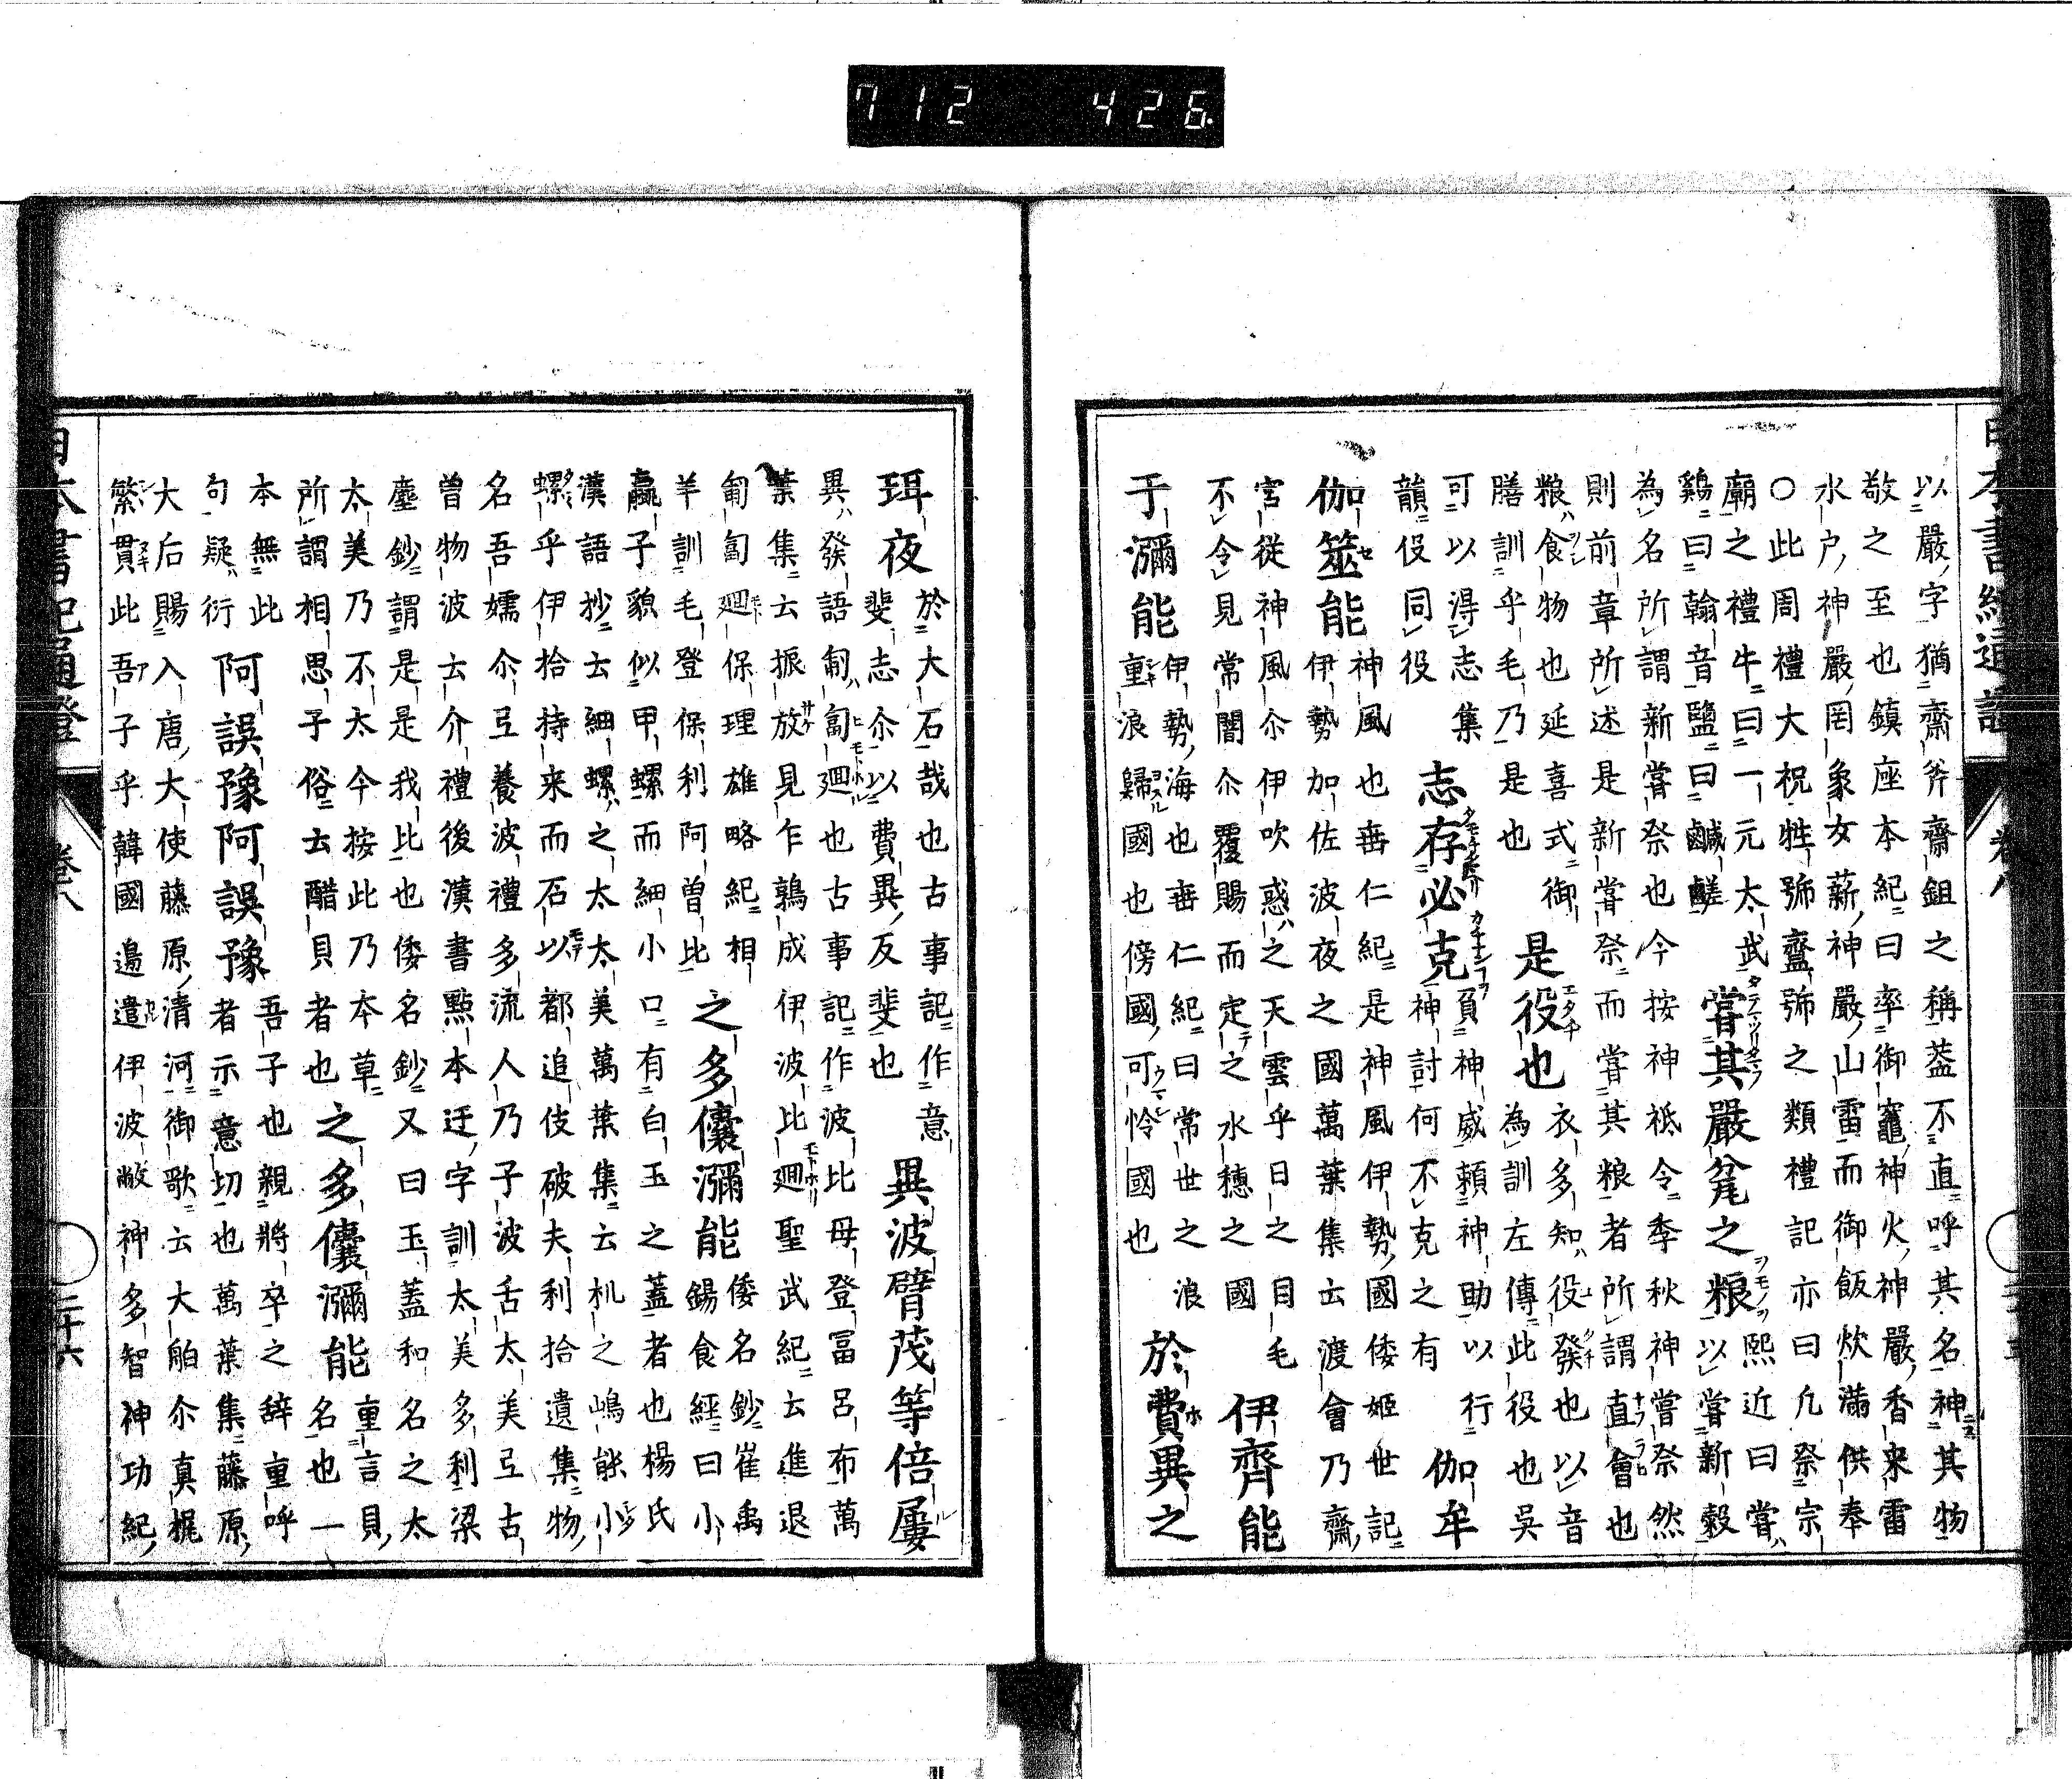 以嚴字猶齋斧齋鉏之稱葢不直呼其名神其物
敬之至也鎮座本紀曰率御竈神火神嚴香来雷
水戸神嚴罔象女薪神嚴山雷而御飯炊滿供奉
〇此周禮大祝牲號齍號之類禮記亦曰凢祭宗
廟之禮牛曰一元太武
雞曰翰音鹽曰鹹鹺
嘗其嚴瓮之粮
熙近曰嘗
以嘗新穀
為名所謂新嘗祭也今按神祇令季秋神嘗祭然
則前章所述是新嘗祭而嘗其粮者所謂直會也
粮食物也延喜式御
膳訓乎毛乃是也
是役也
衣多知役發也以音
為訓左傳此役也吳
可以淂志集
韻伇同役
志存必克
負神威頼神助以行
神討何不克之有
伽牟
伽筮能
神風也垂仁紀是神風伊勢國倭姬世記
伊勢加佐波夜之國萬葉集云渡會乃齋
宮從神風尒伊吹惑之天雲乎日之目毛
不令見常闇尒覆賜而定之水穗之國
伊齊能
于瀰能
伊勢海也垂仁紀曰常世之浪
重浪歸國也傍國可怜國也
於費異之
珥夜
於大石哉也古事記作意
斐志尒以費異反斐也
異波臂茂等倍屢
異發語匍匐廻也古事記作波比母登冨呂布萬
葉集云振放見乍鶉成伊波比廻聖武紀云進退
匍匐廻保理雄略紀相
羊訓毛登保利阿曽比
之多儾瀰能
倭名鈔崔禹
錫食經曰小
蠃子貌似甲螺而細小口有白玉之蓋者也楊氏
漢語抄云細螺之太太美萬葉集云机之嶋能小
螺乎伊拾持来而石以都追伎破夫利拾遺集物
名吾嬬尒弖養波禮多流人乃子波舌太美弖古
曽物波云介禮後漢書㸃本迂字訓太美多利梁
塵鈔謂是是我比也倭名鈔又曰玉蓋和名之太
太美乃不太今按此乃本草
所謂相思子俗云醋貝者也
之多儾瀰能
重言貝
名也一
本無此
句疑衍
阿誤豫阿誤豫
吾子也親將卒之辞重呼
者示意切也萬葉集藤原
大后賜入唐大使藤原清河御歌云大舶尒真梶
繁貫此吾子乎韓國邉遣伊波敝神多智神功紀
日本書紀通證
卷八
二十六